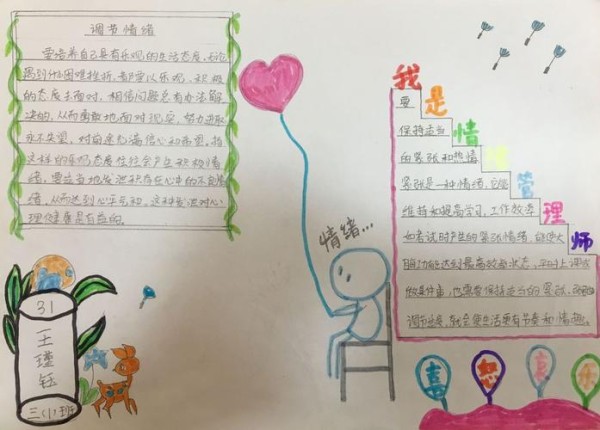 调节情绪
要培养自己具有乐观的生活态度,无论
遇到什么困难挫折,都要以乐观、积极
的态度去面对,相信问题总有办法解
决的,从而勇敢地面对现实,努力进取
永不失望,对前途充满信心和希望,
这样的乐观态度往往会产生积极情
绪,要适当地发泄积存在心中的不良情
绪,从而达到心安,这种发泄对心
理健康是有益的。
我是情绪管理师
要
保持适当
的紧张和热情
紧张是一种情绪,它能
维持和提高学习、工作效率
如考试时产生的紧张情绪,能使大
脑功能达到最高效率状态,平时上课
做某件事,也需要保持适当的紧张、
调节适度,就会使生活更有节奏和情趣。
情绪...
31
王瑾钰
三(1)班
喜
怒
哀
乐